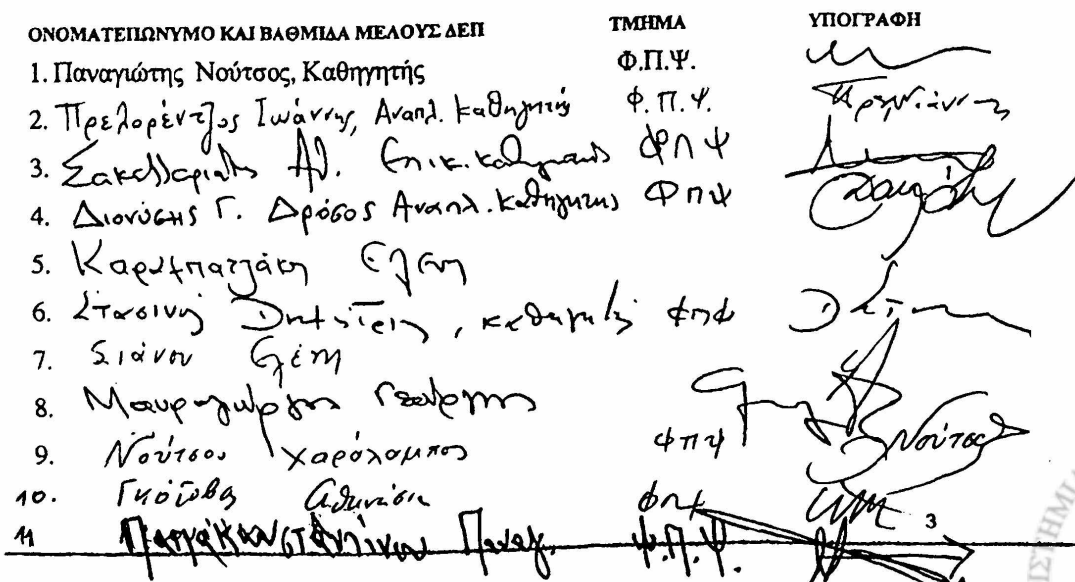 ΟΝΟΜΑΤΕΠΩΝΥΜΟ ΚΑΙ ΒΑΘΜΙΔΑ ΜΕΛΟΥΣ ΔΕΠ ΤΜΗΜΑ ΥΠΟΓΡΑΦΗ
1. Παναγιώτης Νούτσος, Καθηγητής Φ.Π.Ψ.
2. Πρελορέντζος Ιωάννης, Αναπλ. Καθηγητής Φ.Π.Ψ.
3. Σακελλαριάδης Αθ. Επικ. Καθηγητής ΦΠΨ
4. Διονύσης Γ. Δρόσος Αναπλ. Καθηγητής ΦΠΨ
5. Καραμπατζάκη Ελένη
6. Στασινός Δημήτριος, καθηγητής ΦΠΨ
7. Σιάνου Ελένη
8. Μαυρογιώργος Γεώργιος
9. Νούτσος Χαράλαμπος ΦΠΨ Νούτσος
10. Γκότοβος Αθανάσιος ΦΠΨ
11 Παπακωνσταντίνου Παναγ. Φ.Π.Ψ.
3